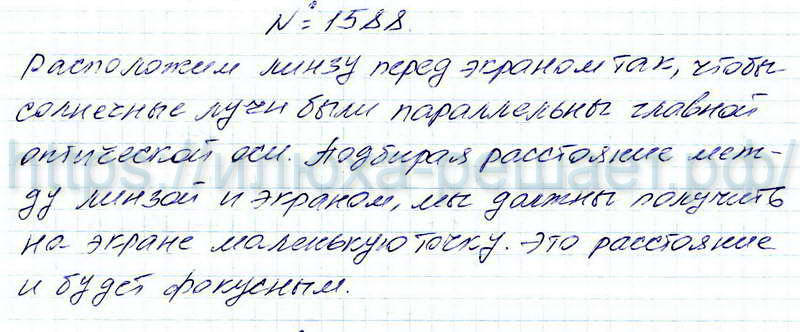 № 1588.
Расположим линзу перед экраном так, чтобы
солнечные лучи были параллельны главной
оптической оси. Подбирая расстояние меж-
ду линзой и экраном, мы должны получить
на экране маленькую точку. Это расстояние
и будет фокусным.
https://гитюха-решает.рф/